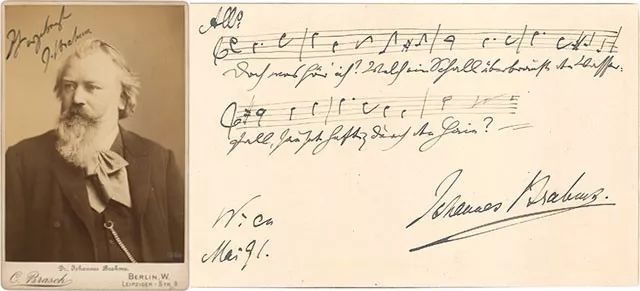 J. Brahms
Dr. Johannes Brahms.
C. Brasch
BERLIN, W.
LEIPZIGER - STR. 8
Allo
Doch was hör' ich? Welch ein Schall überbraust den Wasser-
fall, durch den Hain?
Johannes Brahms.
Wien
Mai 91.